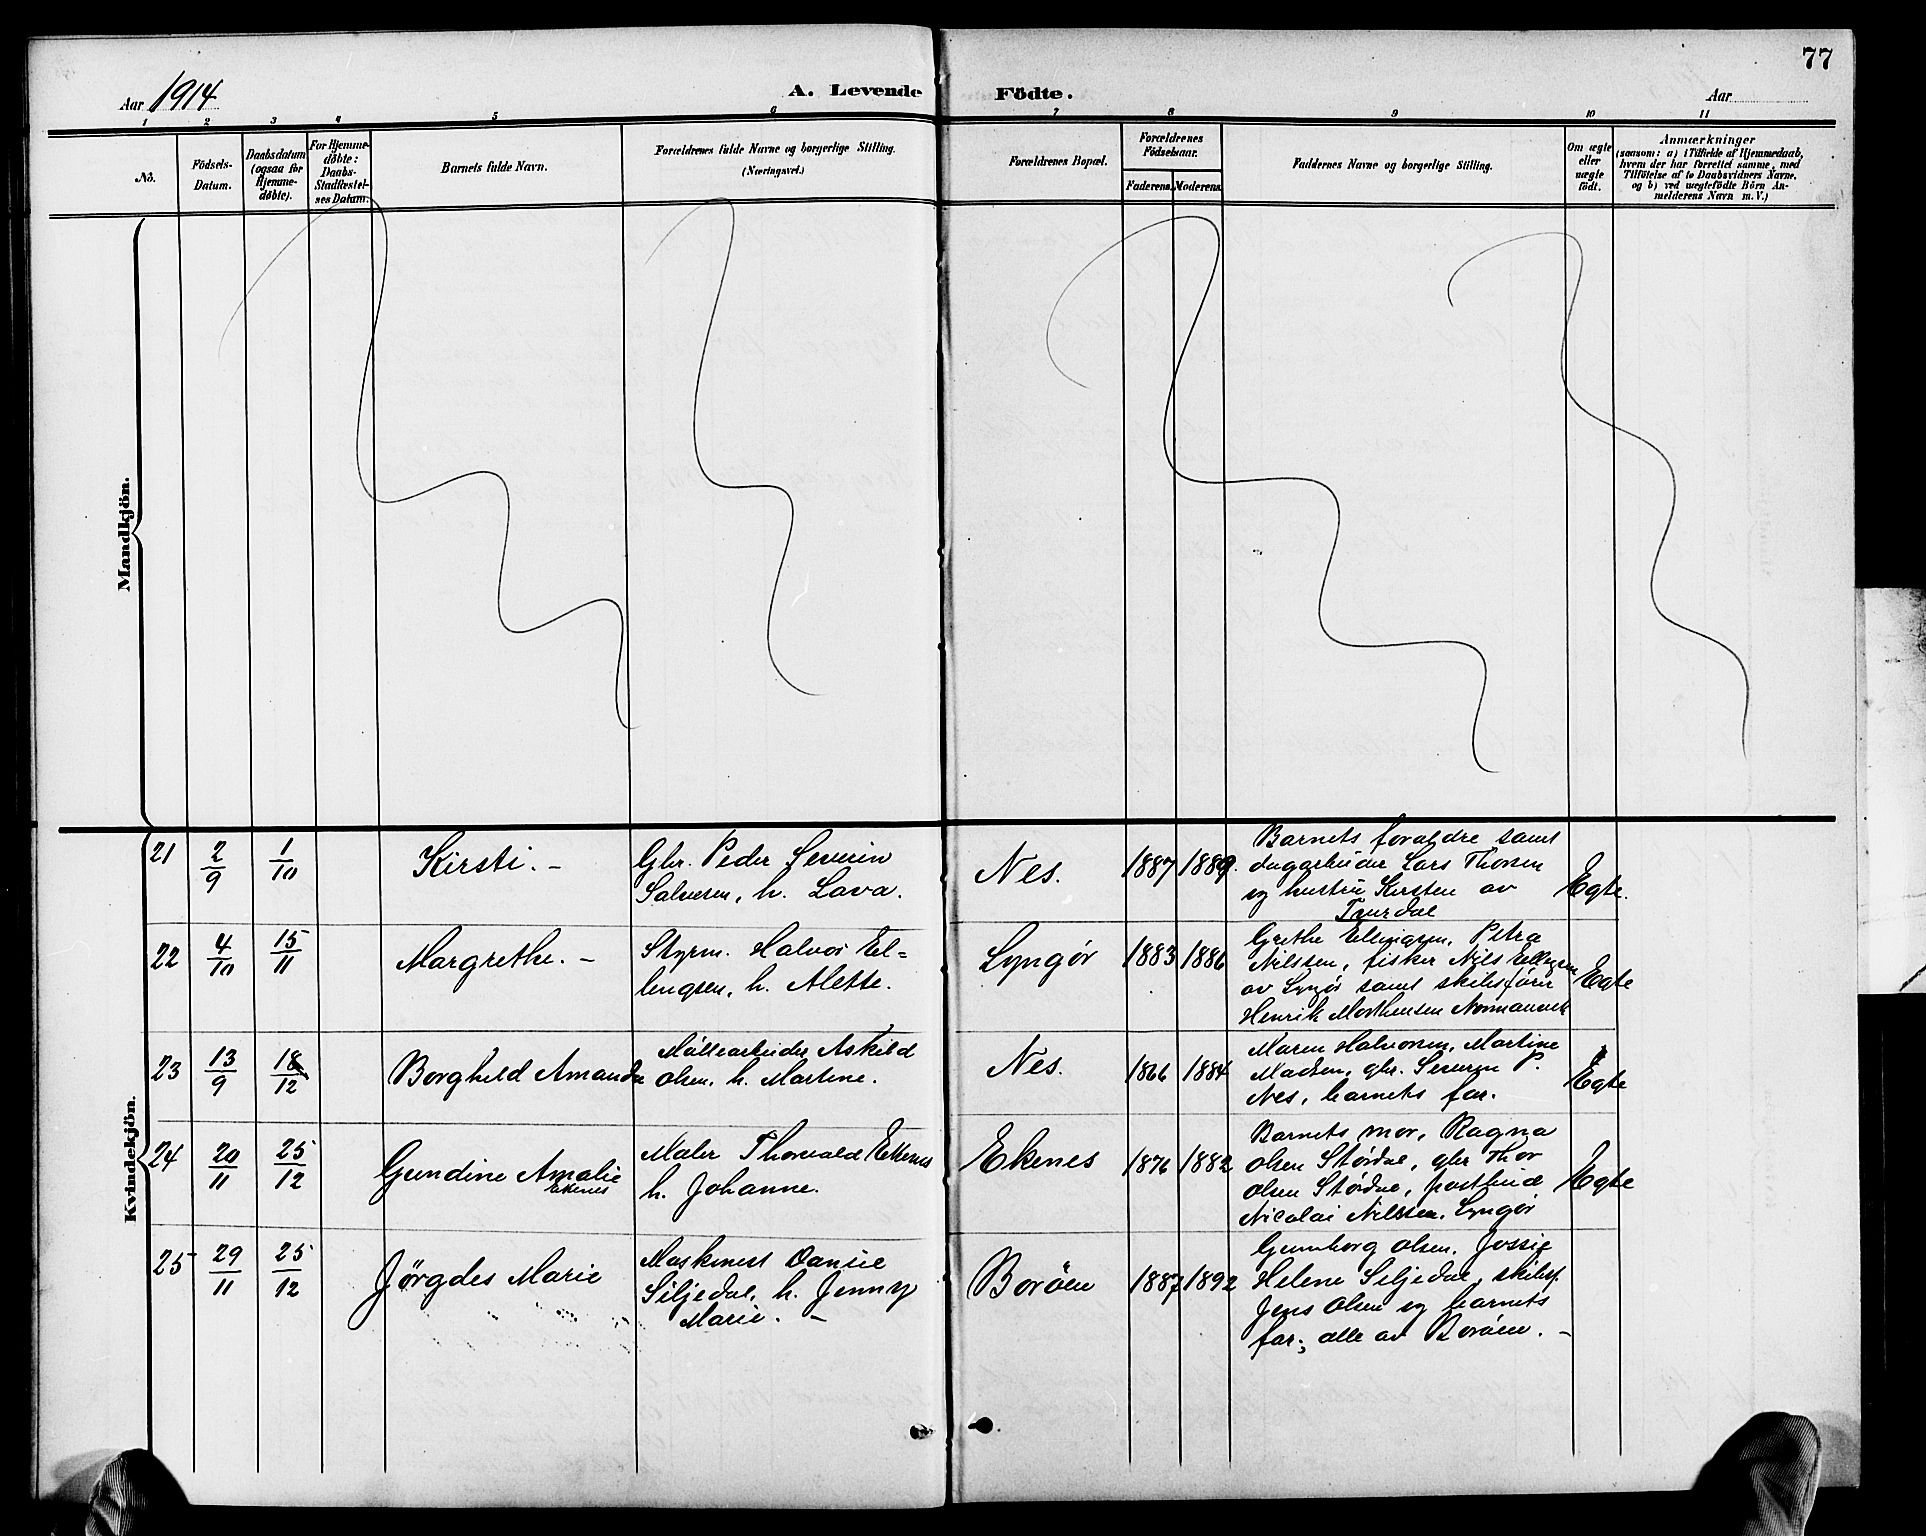 77
Aar 1914
A. Levende Födte.
Aar
1 2 3 4 5 6 7 8 9 10 11
No.
Födsels-
Datum.
Daabsdatum
(ogsaa for
Hjemme-
døbte).
For Hjemme-
døbte:
Daabs-
Stadfestel-
ses Datum.
Barnets fulde Navn.
Forældrenes fulde Navne og borgerlige Stilling.
(Næringsvei.)
Forældrenes Bopæl.
Forældrenes
Födselsaar.
Faderens. Moderens.
Faddernes Navne og borgerlige Stilling.
Om ægte
eller
uægte
født.
Anmærkninger
(saasom: a) i Tilfælde af Hjemmedaab,
hvem der har forrettet samme, med
Tilføielse af to Daabsvidners Navne,
og b) ved uægtefödte Börn An-
melderens Navn m.V.)
Mandkjön.
Kvindekjön.
21
2/9
1/10
Kirsti. -
Gbr. Peder Severin
Salvesen, h. Lava.
Nes.
1887 1889.
Barnets forældre samt
dagarbeider Lars Thorsen
og hustru Kirsten av
Egte.
22
4/10
15/11
Margrethe. -
Styrm. Halvor El=
lingsen, h. Alette.
Lyngør
1883 1886
Grethe Ellingsen, Petra
Nilssen, fisker Nils Ellingsen
av Lyngør samt skibsfører
Henrik Morthensen
Egte
23
13/9
18/12
Borghild Amanda
Møllearbeider Askild
Olsen, h. Martine.
Nes.
1866 1884
Maren Halvorsen, Martine
Madsen, gbr. Severin P.
Nes, barnets far.
Egte
24
20/11
25/12
Gundine Amalie
Ekenes
Maler Thorvald Ekenes
h. Johanne.
Ekenes
1876 1882
Barnets mor, Ragna
Olsen Størdal, gbr Thor
Olsen Størdal, postbud
Nicolai Nilssen, Lyngør
Egte
25
29/11
25/12
Jørgdes Marie
Maskinist Daniel
Siljedal, h. Jenny
Marie. -
Borøen
1887 1892
Gunborg Olsen, Jossie
Helene Siljedal, skibsf.
Jens Olsen og barnets
far; alle av Borøen. -